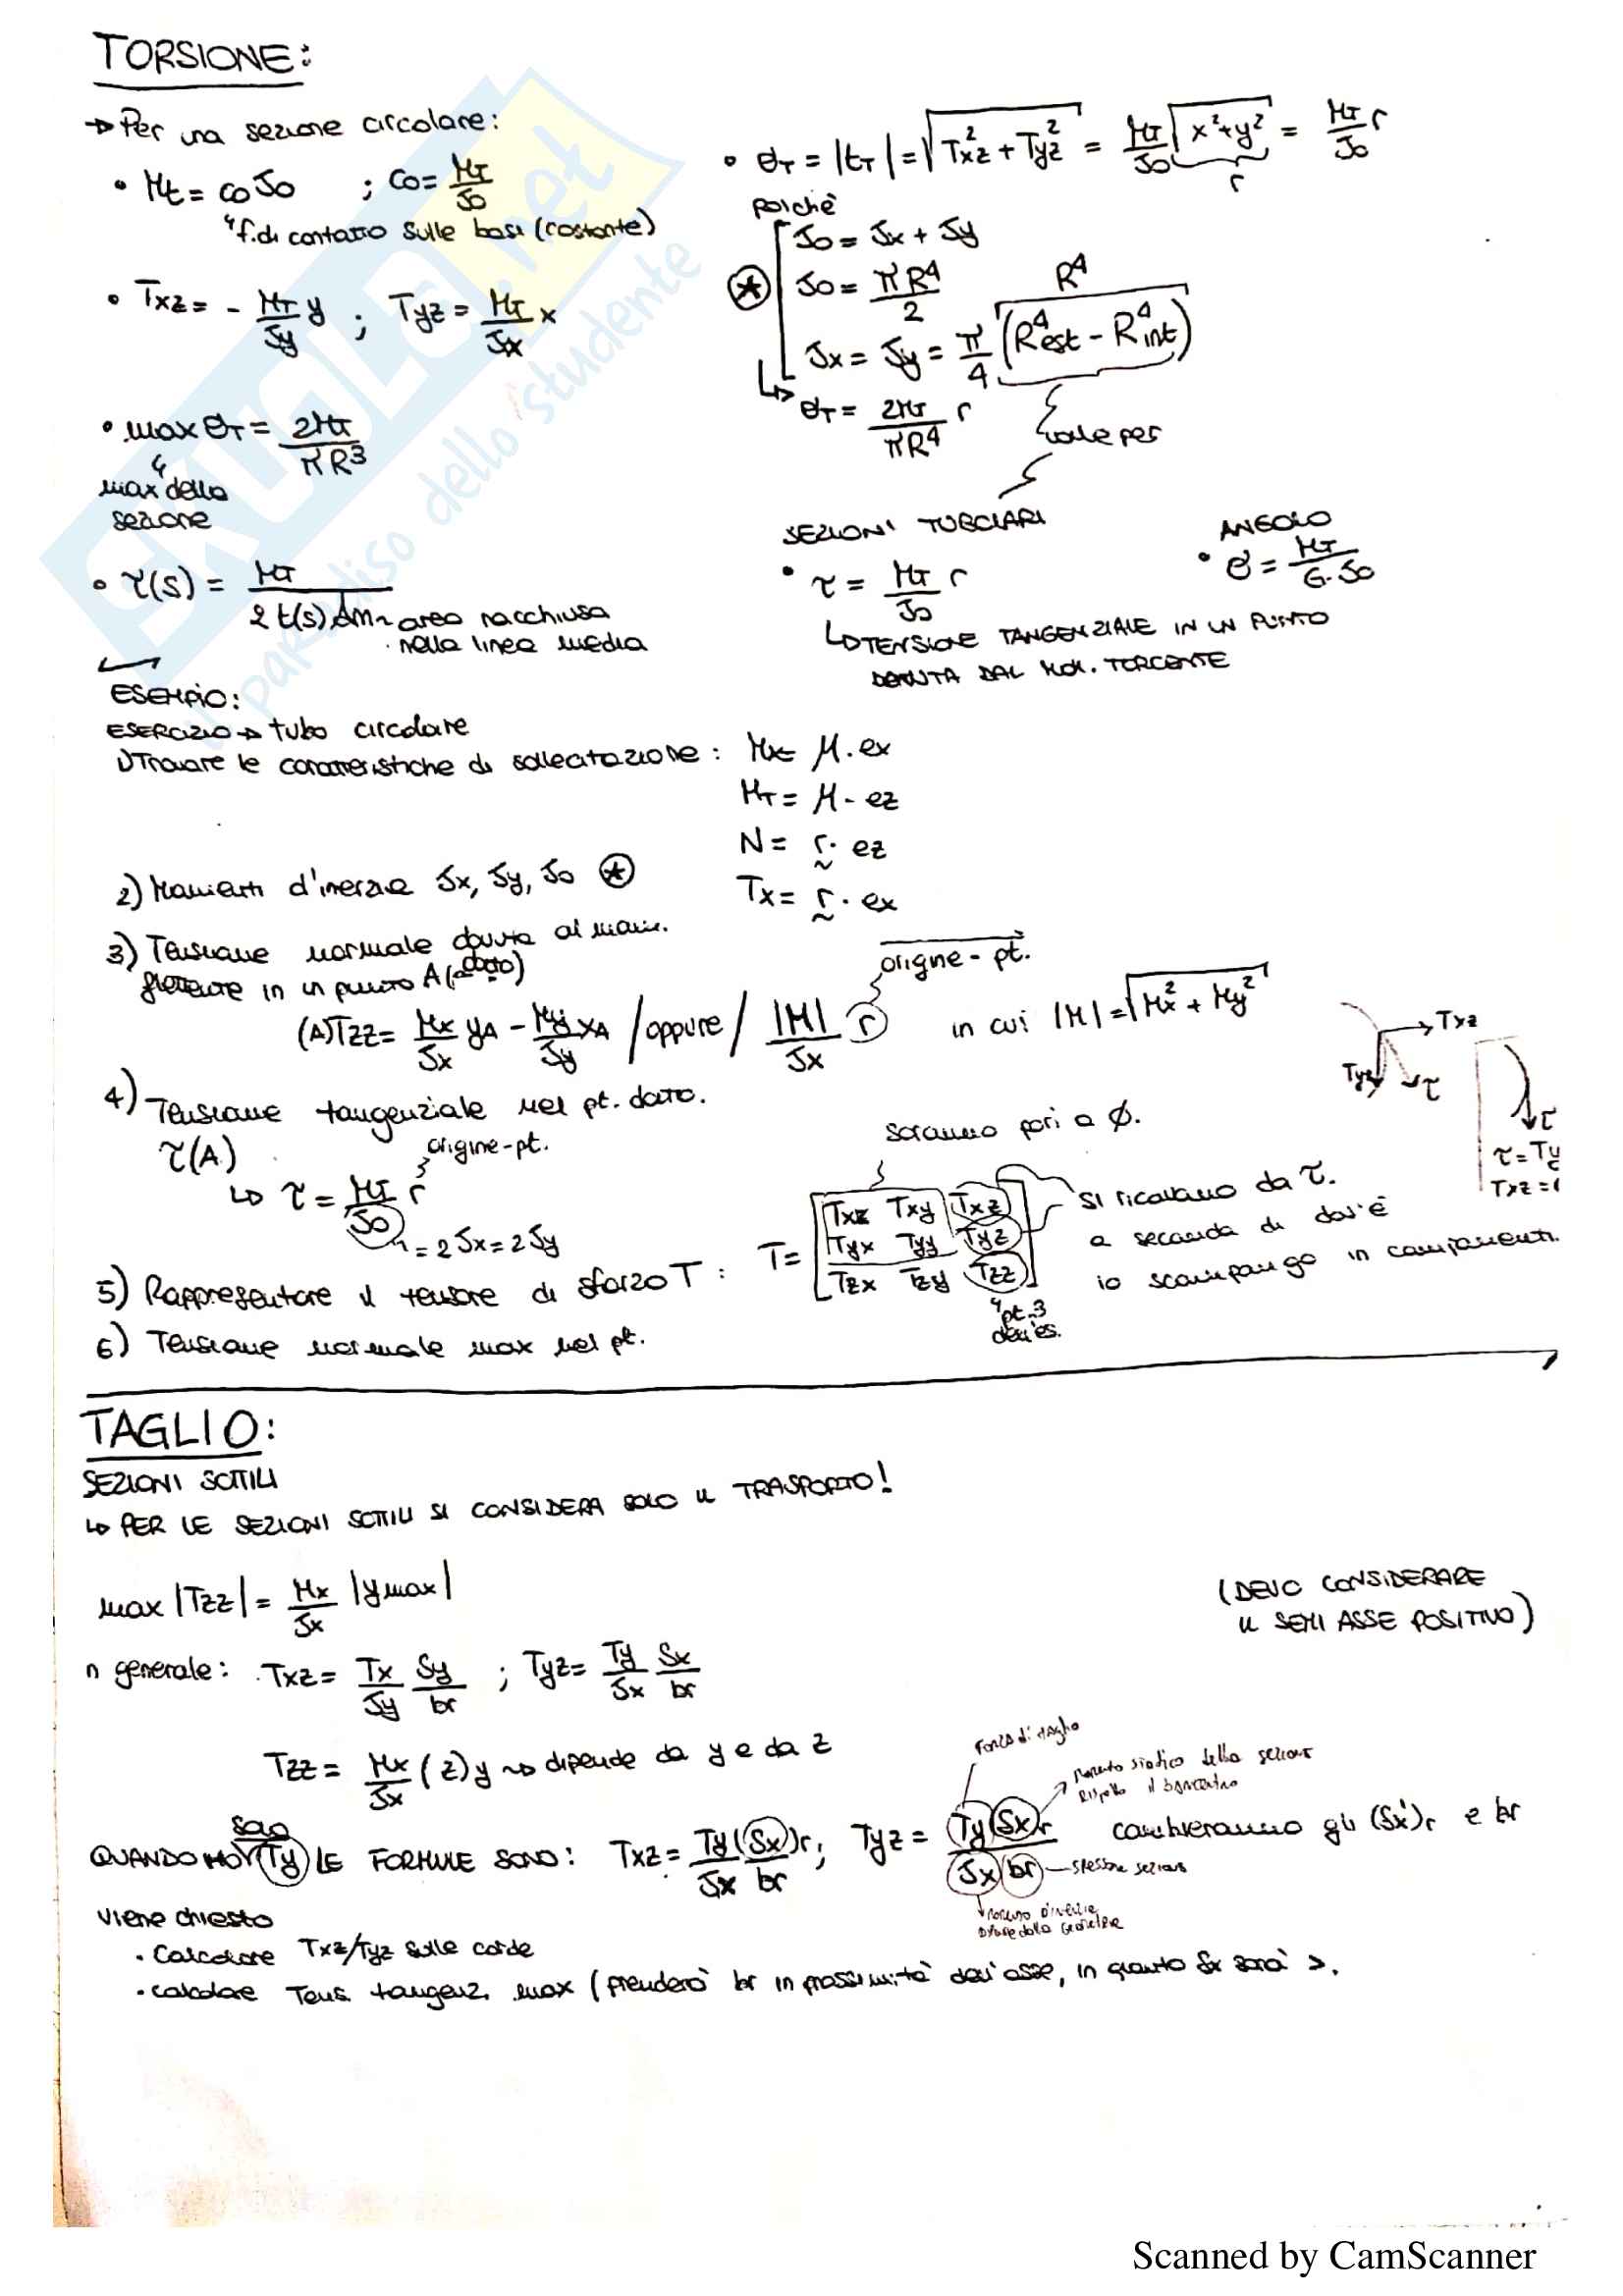 TORSIONE:
→ Per una sezione circolare:
• Mt = co Jo ; co = MT/Jo
↳ f. di contatto sulle basi (costante)
• Txz = - MT/Jy y ; Tyz = MT/Jx x
• max σT = 2MT/πR³
↳ max della sezione
• τ(s) = MT/2t(s)Am ~ area racchiusa
nella linea media
• σT = |tT| = √(Txz² + Tyz²) = MT/Jo √(x²+y²) = MT/Jo r
r
poichè
Jo = Jx + Jy
⊛ Jo = πR⁴/2
R⁴
Jx = Jy = π/4 (R⁴est - R⁴int)
↳ σT = 2MT/πR⁴ r
vale per
SEZIONI TUBOLARI
• τ = MT/Jo r
↳ TENSIONE TANGENZIALE IN UN PUNTO
DOVUTA DAL MOM. TORCENTE
ANGOLO
• θ = MT/G·Jo
ESEMPIO:
ESERCIZIO → tubo circolare
1) Trovare le caratteristiche di sollecitazione: Mx = M · ex
MT = M · ez
N = r · ez
Tx = r · ex
2) Momenti d'inerzia Jx, Jy, Jo ⊛
3) Tensione normale dovuta al mom.
flettente in un punto A (dato)
origine - pt.
(A)Tzz = Mx/Jx yA - My/Jy xA / oppure / |M|/Jx r in cui |M| = √(Mx² + My²)
Txz
Tyz
τ
τ
τ = Ty
Txz = 
4) Tensione tangenziale nel pt. dato.
τ(A)
origine - pt.
↳ τ = MT/Jo r
= 2Jx = 2Jy
saranno pari a ∅.
5) Rappresentare il tensore di sforzo T : T = [Txx Txy Txz
Tyx Tyy Tyz
Tzx Tzy Tzz]
si ricavano da τ.
a seconda di dov'è
io scompongo in componenti.
↳ pt. 3
dell'es.
6) Tensione normale max nel pt.
TAGLIO:
SEZIONI SOTTILI
↳ PER LE SEZIONI SOTTILI SI CONSIDERA SOLO IL TRASPORTO!
max |Tzz| = Mx/Jx |ymax|
(DEVO CONSIDERARE
IL SEMI ASSE POSITIVO)
n generale: Txz = Tx/Jy Sy/br ; Tyz = Ty/Jx Sx/br
Tzz = Mx/Jx (z) y → dipende da y e da z
solo
QUANDO HO Ty LE FORMULE SONO: Txz = Ty(Sx)r/Jx br ; Tyz = Ty(Sx)r/Jx br cambieranno gli (Sx')r e br
Forza di taglio
momento statico della sezione
rispetto il baricentro
spessore sezione
momento d'inerzia
viene chiesto
• Calcolare Txz/Tyz sulle corde
• calcolare Tens. tangenz. max (prenderò br in prossimità dell'asse, in quanto Sx sarà >.
SKUOLA.net
il paradiso dello studente
Scanned by CamScanner